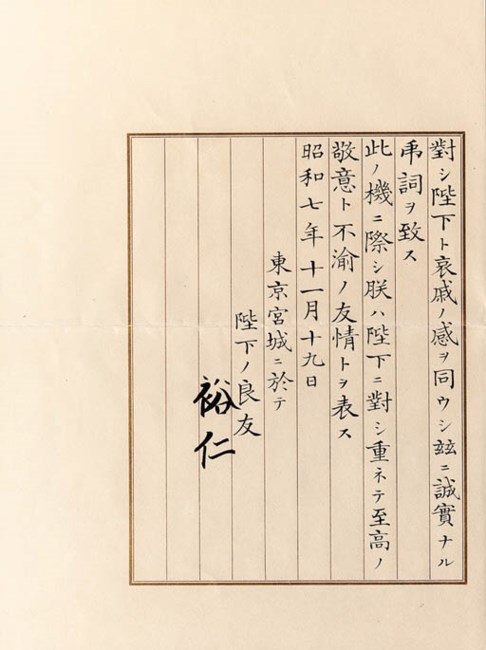 對シ陛下ト哀戚ノ感ヲ同ウシ玆ニ誠實ナル
弔詞ヲ致ス
此ノ機ニ際シ朕ハ陛下ニ對シ重ネテ至高ノ
敬意ト不渝ノ友情トヲ表ス
昭和七年十一月十九日
東京宮城ニ於テ
陛下ノ良友
裕仁